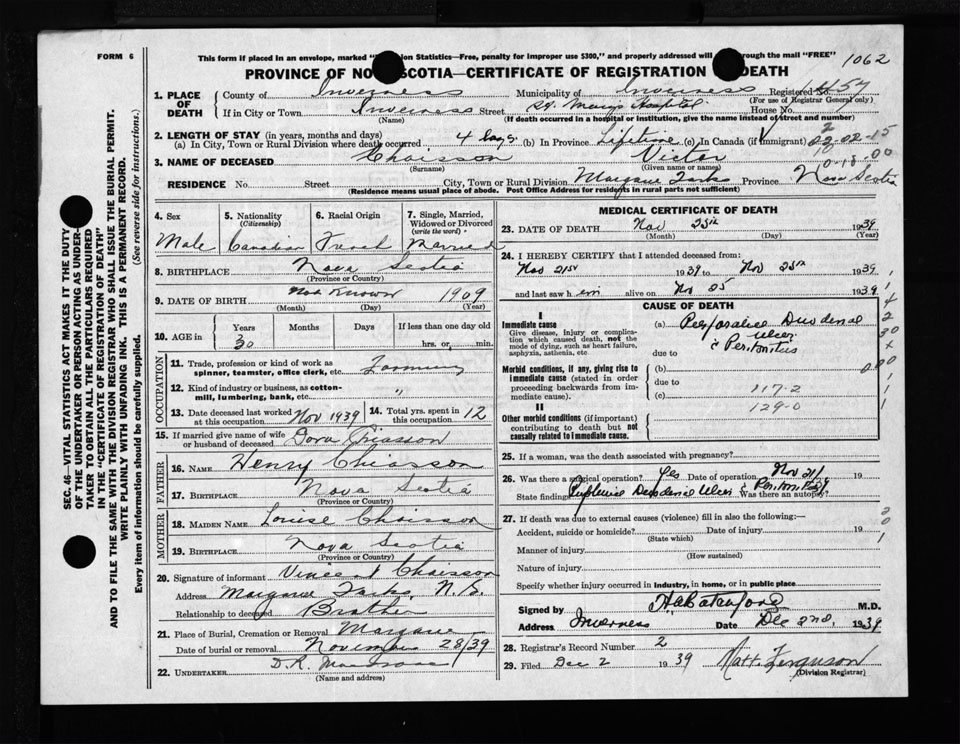 FORM 6
1062
This form if placed in an envelope, marked "on Statistics—Free, penalty for improper use $300," and properly addressed will through the mail "FREE"
PROVINCE OF NO SCOTIA—CERTIFICATE OF REGISTRATION DEATH
1. PLACE OF DEATH
County of Inverness Municipality of Inverness Registered No.
(For use of Registrar General only)
If in City or Town Inverness Street St. Mary's Hospital House No.
(Name) (If death occurred in a hospital or institution, give the name instead of street and number)
2. LENGTH OF STAY (in years, months and days)
(a) In City, Town or Rural Division where death occurred 4 days (b) In Province Lifetime (c) In Canada (if immigrant)
3. NAME OF DECEASED Chaisson Victor
(Surname) (Given name or names)
RESIDENCE No. Street City, Town or Rural Division Margaree Forks Province Nova Scotia
(Residence means usual place of abode. Post Office Address for residents in rural parts not sufficient)
4. Sex Male
5. Nationality (Citizenship) Canadian
6. Racial Origin French
7. Single, Married, Widowed or Divorced (write the word) Married
8. BIRTHPLACE Nova Scotia
(Province or Country)
9. DATE OF BIRTH Not Known 1909
(Month) (Day) (Year)
10. AGE in Years Months Days If less than one day old
30 hrs. or min.
OCCUPATION
11. Trade, profession or kind of work as spinner, teamster, office clerk, etc. Farming
12. Kind of industry or business, as cotton-mill, lumbering, bank, etc. "
13. Date deceased last worked at this occupation Nov 1939
14. Total yrs. spent in this occupation 12
15. If married give name of wife or husband of deceased Dora Chiasson
FATHER
16. NAME Henry Chiasson
17. BIRTHPLACE Nova Scotia
(Province or Country)
MOTHER
18. MAIDEN NAME Louise Chaisson
19. BIRTHPLACE Nova Scotia
(Province or Country)
20. Signature of informant Vincent Chaisson
Address Margaree Forks, N.S.
Relationship to deceased Brother
21. Place of Burial, Cremation or Removal Margaree
Date of burial or removal November 28/39
22. UNDERTAKER D.R.
(Name and address)
MEDICAL CERTIFICATE OF DEATH
23. DATE OF DEATH Nov 25th 1939
(Month) (Day) (Year)
24. I HEREBY CERTIFY that I attended deceased from:
Nov 21st 1939 to Nov 25th 1939
and last saw him alive on Nov 25 1939
CAUSE OF DEATH
I
Immediate cause
Give disease, injury or complication which caused death, not the mode of dying, such as heart failure, asphyxia, asthenia, etc
(a) Perforated Duodenal Ulcer
due to & Peritonitis
Morbid conditions, if any, giving rise to immediate cause (stated in order proceeding backwards from immediate cause).
(b)
due to 117-2
(c) 129-0
II
Other morbid conditions (if important) contributing to death but not causally related to immediate cause.
25. If a woman, was the death associated with pregnancy?
26. Was there a surgical operation? Yes Date of operation Nov 21/39
State findings Perforated Duodenal Ulcer & Peritonitis Was there an autopsy?
27. If death was due to external causes (violence) fill in also the following:—
Accident, suicide or homicide? Date of injury 19
(State which)
Manner of injury
(How sustained)
Nature of injury
Specify whether injury occurred in industry, in home, or in public place
Signed by M.D.
Address Inverness Date Dec 2nd, 1939
28. Registrar's Record Number 2
29. Filed Dec 2 1939 Matt. Ferguson
(Division Registrar)
SEC. 46—VITAL STATISTICS ACT MAKES IT THE DUTY
OF THE UNDERTAKER OR PERSON ACTING AS UNDER-
TAKER TO OBTAIN ALL THE PARTICULARS REQUIRED
IN THE "CERTIFICATE OF REGISTRATION OF DEATH"
AND TO FILE THE SAME WITH THE DIVISION REGISTRAR WHO SHALL ISSUE THE BURIAL PERMIT.
WRITE PLAINLY WITH UNFADING INK. THIS IS A PERMANENT RECORD.
Every item of information should be carefully supplied. (See reverse side for instructions.)